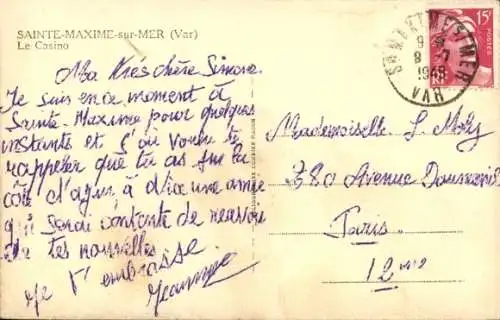 SAINTE-MAXIME-sur-MER (Var)
Le Casino
Ma très chère Simone.
Je suis en ce moment à
Sainte-Maxime pour quelques
instants et j'ai voulu te
rappeler que tu as sur la
côte d'azur à une amie
qui serait contente de recevoir
de tes nouvelles
Je t'embrasse.
Jeannine
Mademoiselle S.
Avenue Daumesnil
Paris
12me
STE MAXIME S MER
1948
VAR
15F
POSTES